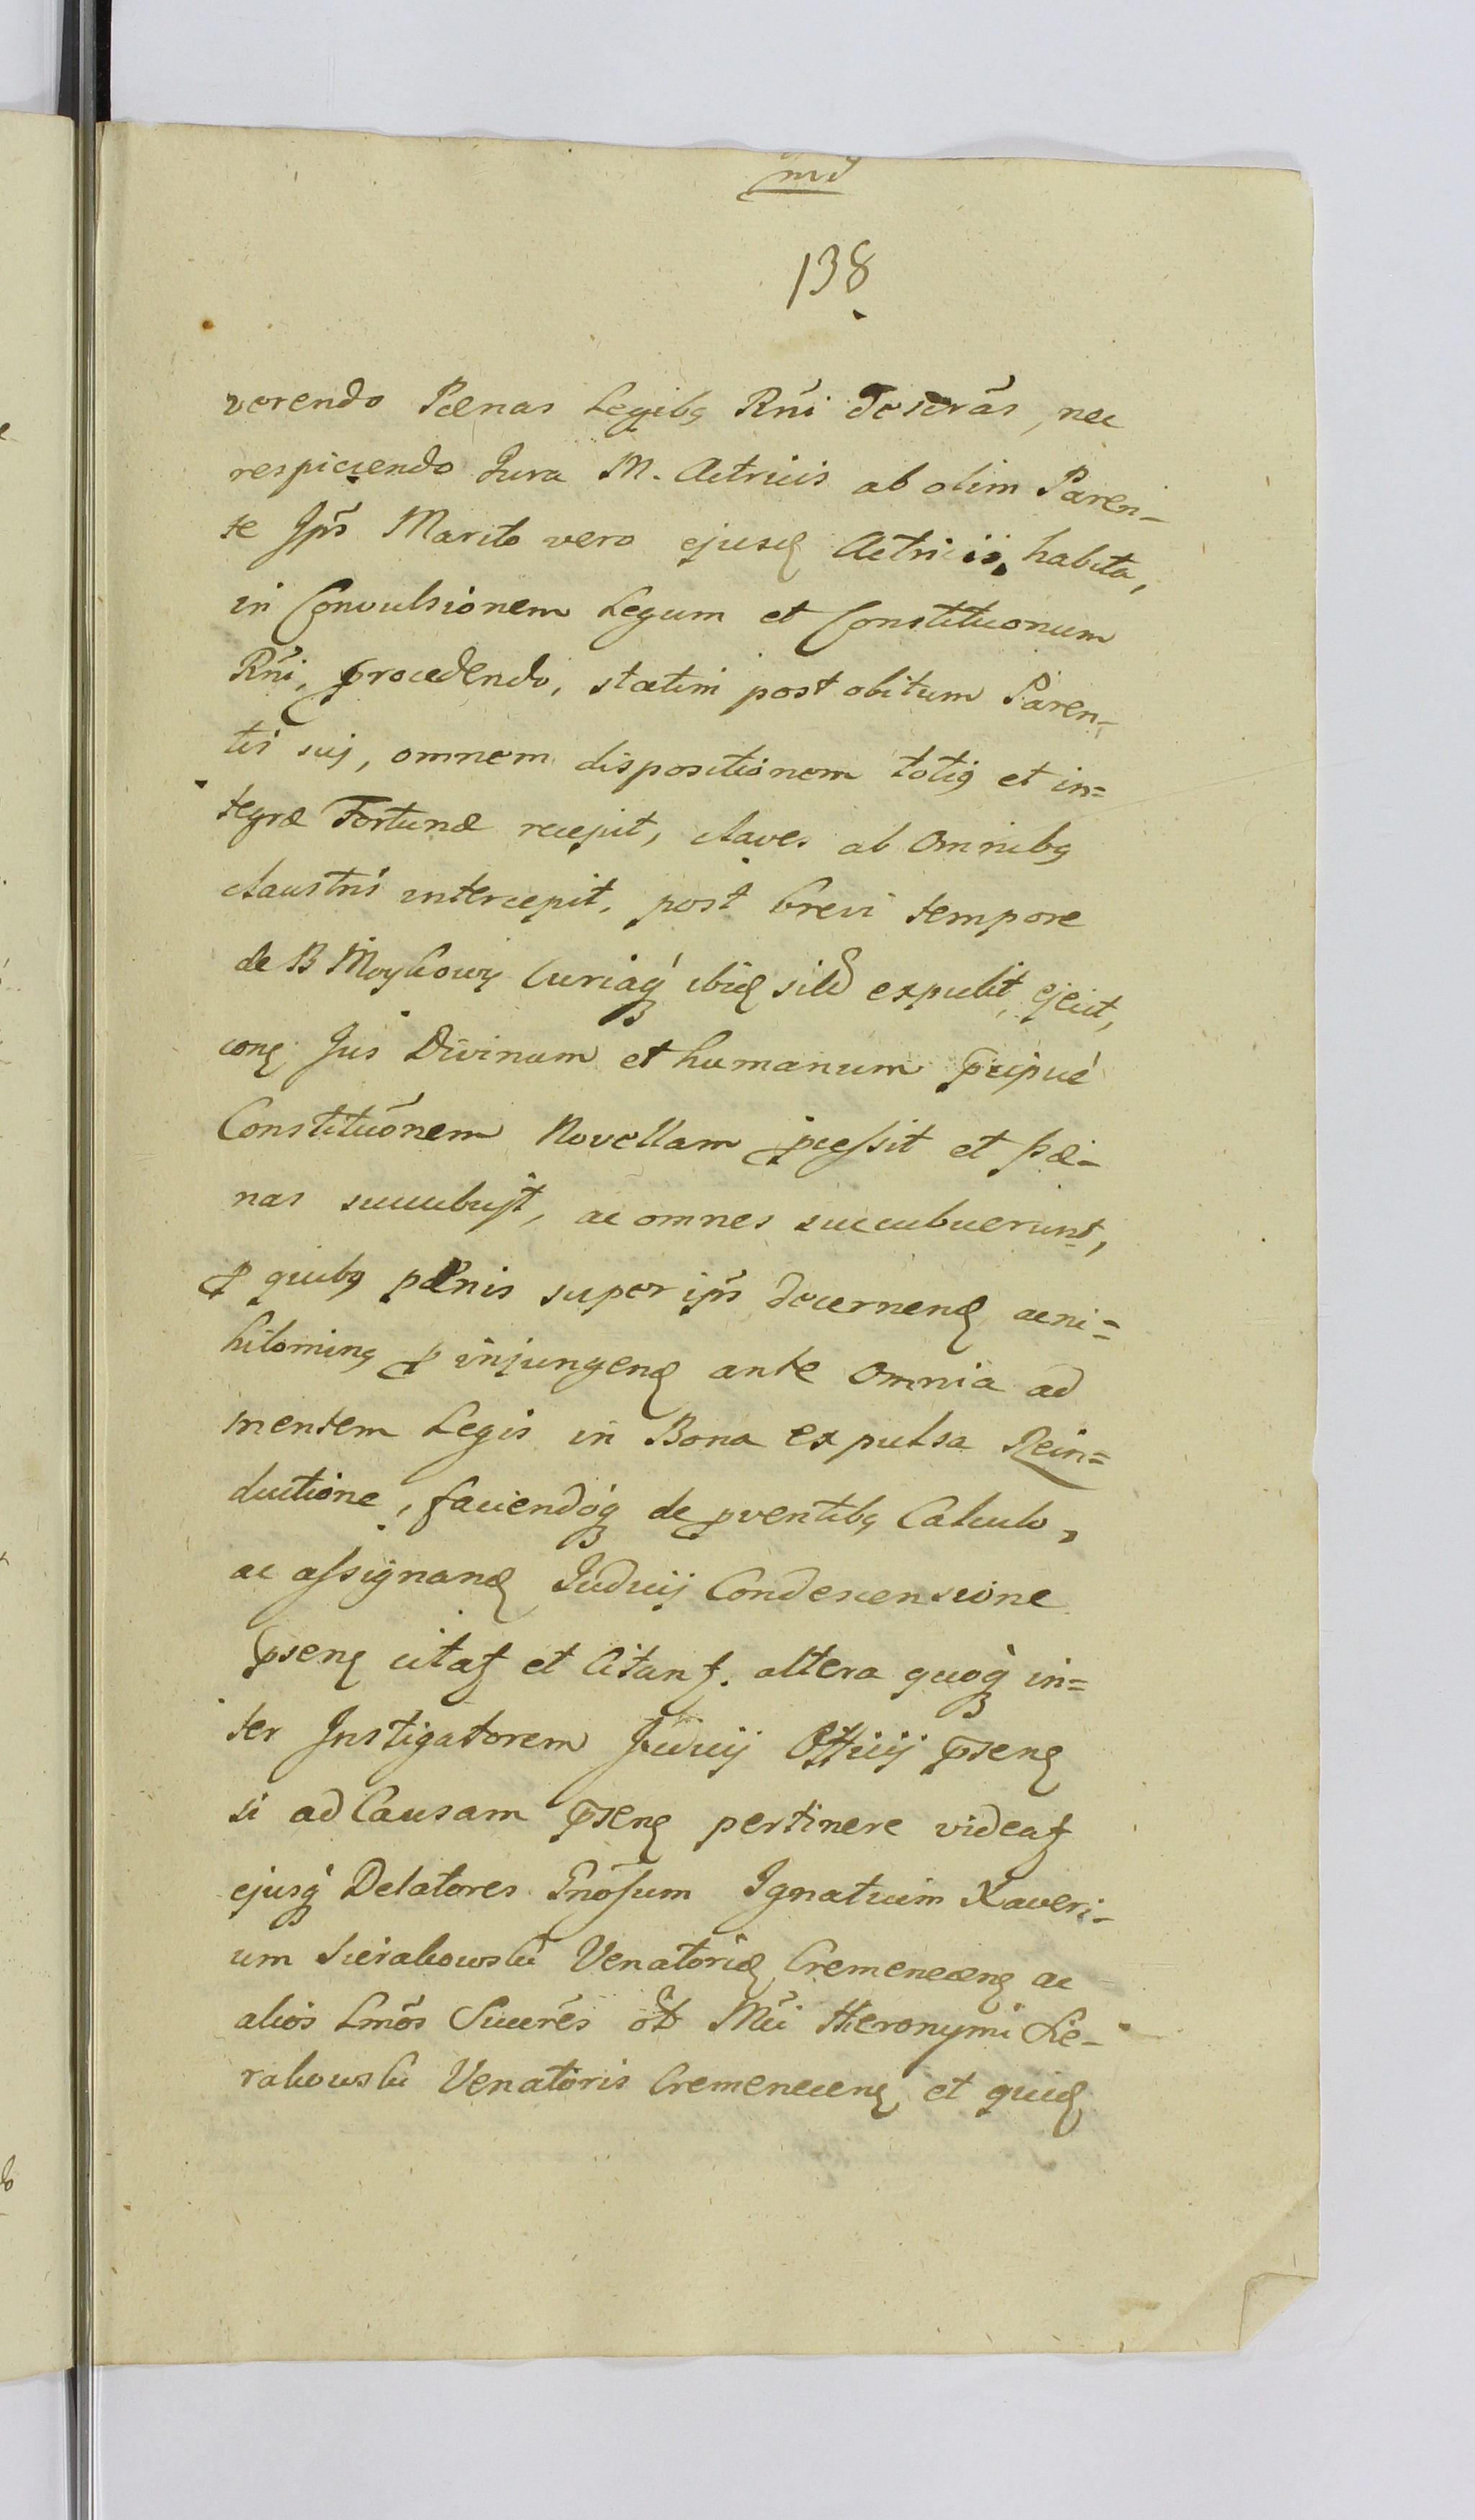 138
verendo Pænas Legibꝯ Rñi descrãs, nec
respiciendo Jura M. Actricis ab olim Paren-
te Ips̃ Marito vero ejusꝺ Actricis, habita,
in Convulsionem Legum et Constituonum
Rñi, procedendo, statim post obitum Paren-
tis sui, omnem dispositionem totiꝯ et in=
tegræ Fortunæ recepit, claves ab omnibꝯ
claustris intercepit, post brevi tempore
de B Moykowy Curiaqꝫ ibiꝺ expulit, ejecit,
conꝺ Jus Divinum et humanum p̃cipué
Constituõnem Novellam ꝓcessit et pæ-
nas succubuit, ac omnes succubuerunt,
ꝓ quibꝯ pænis super ips̃ decernenꝺ ac ni=
hilominꝯ ꝓ injungenꝺ ante omnia ad
mentem Legis in Bona expulsa Rein=
ductione, faciendoqꝫ de ꝓventibꝯ Calculo,
ac assignanꝺ Judicij Condescensione
p̃senꝺ citatꝭ et Citantꝭ. altera quoqꝫ in=
ter Instigatorem Judicij Officij p̃senꝺ
si ad Causam p̃senꝺ pertinere videatꝭ
ejusqꝫ Delatores Gnõsum Ignatium Xaveri-
um Sierakowski Venatoriꝺ Cremenecenꝺ ac
alios Lmõs Succrẽs ol̃ Mci Hieronymi Sie-
rakowski Venatoris Cremenecenꝺ et quiꝺ